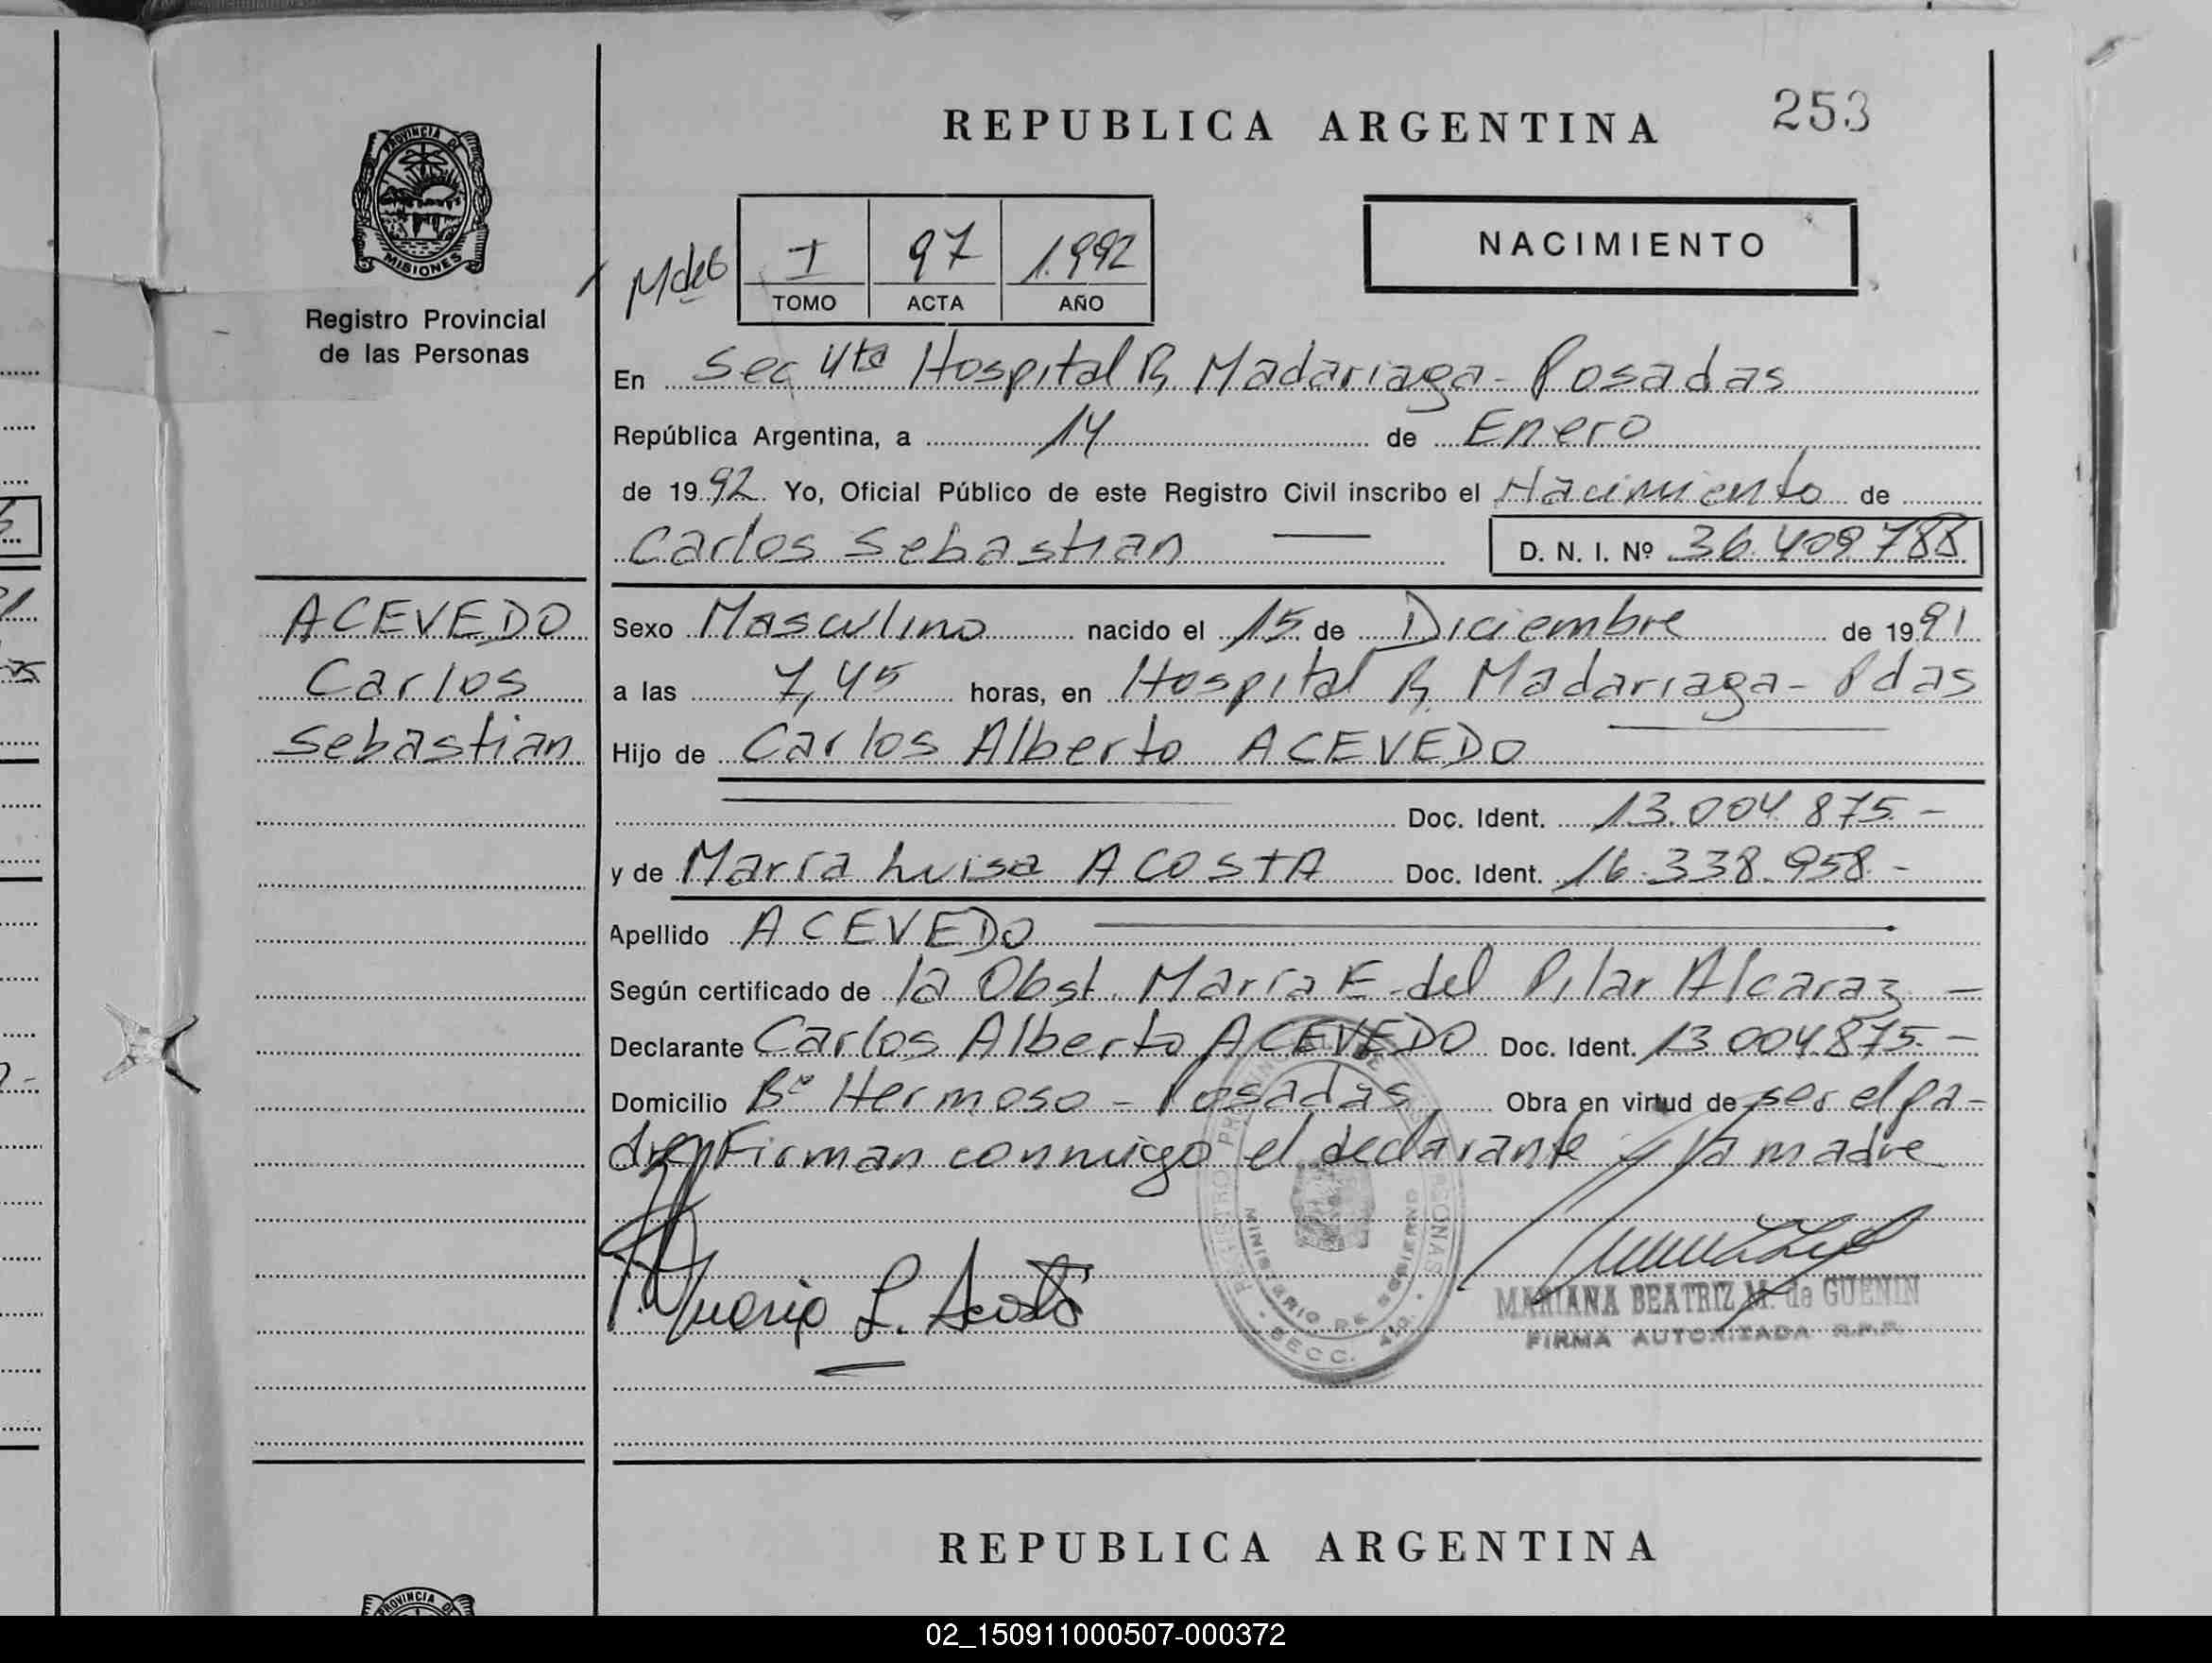 REPUBLICA ARGENTINA 253
PROVINCIA DE MISIONES
Registro Provincial
de las Personas
I 97 1.992
TOMO ACTA AÑO
NACIMIENTO
En Sec 4ta Hospital R. Madariaga - Posadas
República Argentina, a 14 de Enero
de 1992. Yo, Oficial Público de este Registro Civil inscribo el Nacimiento de
Carlos Sebastian —
D. N. I. Nº 36.409.788
ACEVEDO
Carlos
Sebastian
Sexo Masculino nacido el 15 de Diciembre de 1991
a las 7,45 horas, en Hospital R. Madariaga - Pdas
Hijo de Carlos Alberto ACEVEDO
Doc. Ident. 13.004.875.-
y de María Luisa ACOSTA Doc. Ident. 16.338.958.-
Apellido ACEVEDO
Según certificado de la Obst. María E. del Pilar Alcaraz —
Declarante Carlos Alberto ACEVEDO Doc. Ident. 13.004.875.-
Domicilio Bº Hermoso - Posadas Obra en virtud de ser el pa-
dre, Firman conmigo el declarante y la madre
Maria L. Acosta
MINISTERIO DE GOBIERNO
MARIANA BEATRIZ M. de GUENIN
FIRMA AUTORIZADA R.P.P.
REPUBLICA ARGENTINA
PROVINCIA DE
02_150911000507-000372